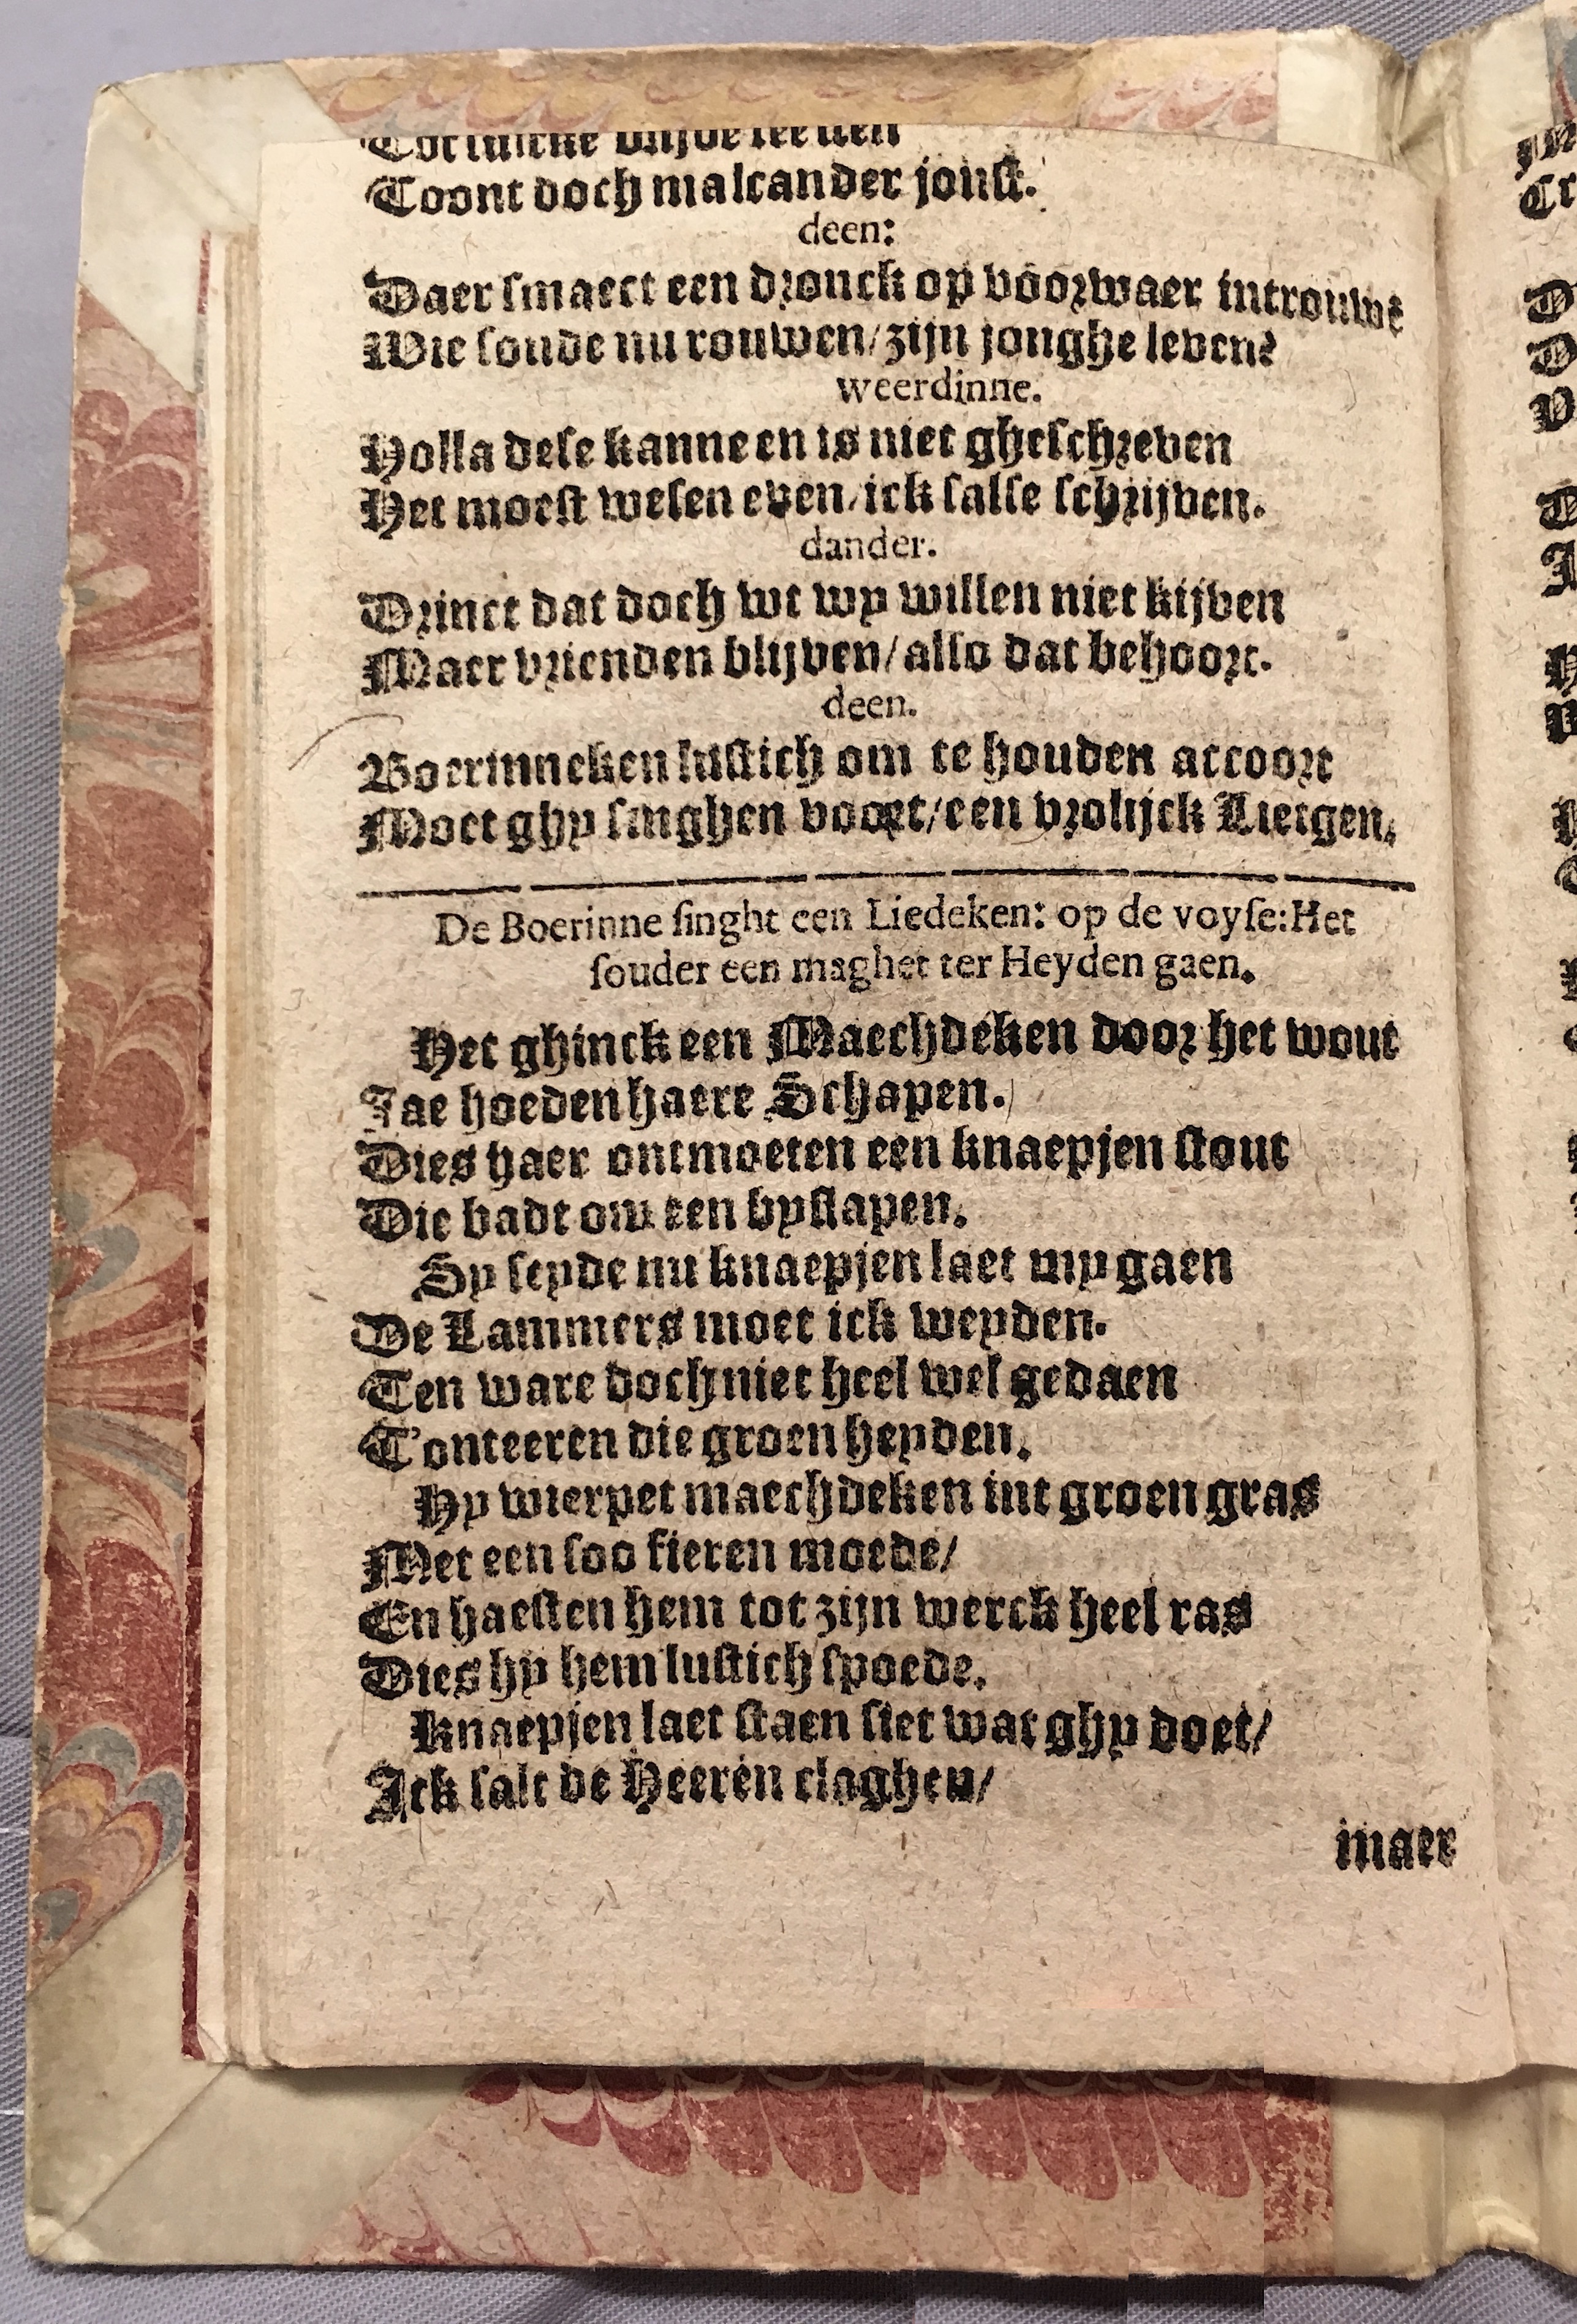 Toont doch malcander jonst.
deen:
Daer smaect een dronck op voorwaer introuwe
Wie soude nu rouwen/zijn jonghe leven?
weerdinne.
Holla dese kanne en is niet gheschreven
Het moest wesen even/ick salse schrijven.
dander.
Drinct dat doch wt wy willen niet kijven
Maer vrienden blijven/also dat behoort.
deen.
Boerinneken lustich om te houden accoort
Moet ghy singhen voort/een vrolijck Lietgen.
De Boerinne singht een Liedeken: op de voyse:Het
souder een maghet ter Heyden gaen.
Het ghinck een Maechdeken door het wout
Jae hoeden haere Schapen.
Dies haer ontmoeten een knaepjen stout
Die badt om een byslapen.
Sy seyde nu knaepjen laet my gaen
De Lammers moet ick weyden.
Ten ware doch niet heel wel gedaen
T'onteeren die groen heyden.
Hy wierpet maechdeken int groen gras
Met een soo fieren moede/
En haesten hem tot zijn werck heel ras
Dies hy hem lustich spoede.
Knaepjen laet staen siet wat ghy doet/
Ick salt de Heeren claghen/
maer